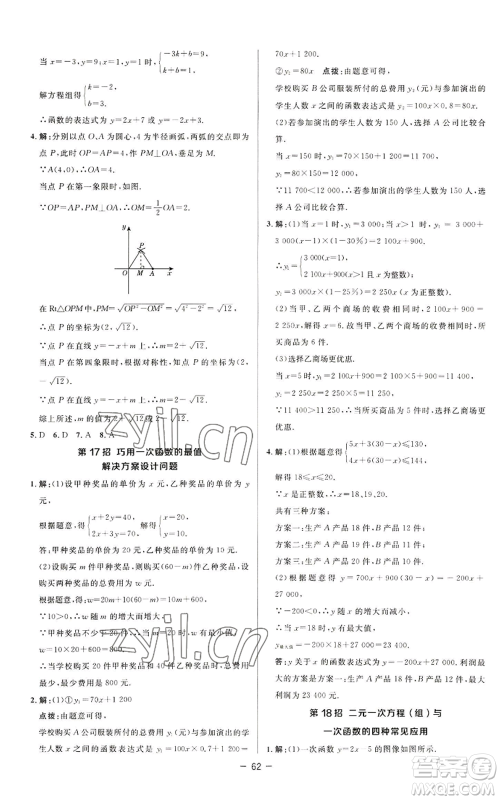 当 x=-3 时,y=9,{-3k+b=9, k+b=1.
解方程组得{k=-2, b=3.
∴函数的表达式为 y=2x+7 或 y=-2x+3.
4.解:分别以点 O,A 为圆心,4 为半径画弧,两弧的交点即为点 P,此时 OP=AP=4,作 PM⊥OA 于 M.
∵A(4,0),∴OA=4.
当点 P 在第一象限时,如图.
∵OP=PA,PM⊥OA,∴OM=1/2 OA=2.
y
P
O
M
A
x
在 Rt△OPM 中,PM=√(OP²-OM²)=√(4²-2²)=√12,
∴点 P 的坐标为(2,√12).
∵点 P 在直线 y=-x+m 上,
∴m=2+√12.
当点 P 在第四象限时,根据对称性,知点 P 的坐标为(2,-√12).
∵点 P 在直线 y=-x+m 上,
∴m=2-√12.
综上所述,m 的值为 2+√12或 2-√12.
5. D 6. D 7. A 8. A
第 17 招 巧用一次函数的最值
解决方案设计问题
1.解:(1)设甲种奖品的单价为 x 元,乙种奖品的单价为 y 元,
根据题意,得{x+2y=40, 2x+3y=70, 解得{x=20, y=10.
答:甲种奖品的单价为 20 元,乙种奖品的单价为 10 元.
(2)设购买 m 件甲种奖品,则购买(60-m)件乙种奖品,设购买两种奖品的总费用为 w 元,
根据题意,得 w=20m+10(60-m)=10m+600.
∵10>0,∴w 随 m 的增大而增大.
∵甲种奖品不少于 20 件,∴当 m=20 时,w 最小,w=10×20+600=800.
∴当学校购买 20 件甲种奖品和 40 件乙种奖品时,总费用最少,最少费用是 800 元.
2.解:(1)①y₁=70x+1 200
点拨:由题意可得,
学校购买 A 公司服装所付的总费用 y₁(元)与参加演出的学生人数 x 之间的函数表达式为
70x+1 200.
②y₂=80x 点拨:由题意可得,
学校购买 B 公司服装所付的总费用 y₂(元)与参加演出的学生人数 x 之间的函数表达式为 y₂=100x×0.8=80x.
(2)若参加演出的学生人数为 150 人,选择 A 公司比较合算.
当 x=150 时,y₁=70×150+1 200=11 700,
y₂=80×150=12 000,
∵11 700<12 000,∴若参加演出的学生人数为 150 人,选择 A 公司比较合算.
3.解:(1)当 x=1 时,y₁=3 000;当 x>1 时,y₁=3 000+3 000(x-1)×(1-30%)=2 100x+900.
∴y₁={3 000(x=1), 2 100x+900(x>1且x为正整数).
y₂=3 000x(1-25%)=2 250x,
∴y₂=2 250x(x 为正整数).
(2)当甲、乙两个商场的收费相同时,2 100x+900=2 250x,解得 x=6.故当甲、乙两个商场的收费相同时,所买商品为 6 件.
(3)选择乙商场更优惠.
当 x=5 时,y₁=2 100x+900=2 100×5+900=11 400,
y₂=2 250x=2 250×5=11 250,
∵11 400>11 250,∴当所买商品为 5 件时,选择乙商场更优惠.
x=18,19,20.
共有三种方案:
方案一:生产 A 产品 18 件,B 产品 12 件;
方案二:生产 A 产品 19 件,B 产品 11 件;
方案三:生产 A 产品 20 件,B 产品 10 件.
第 18 招 二元一次方程(组)与
一次函数的四种常见应用
1.解:(1)一次函数 y=2x-5 的图象如图所示.
- 62 -